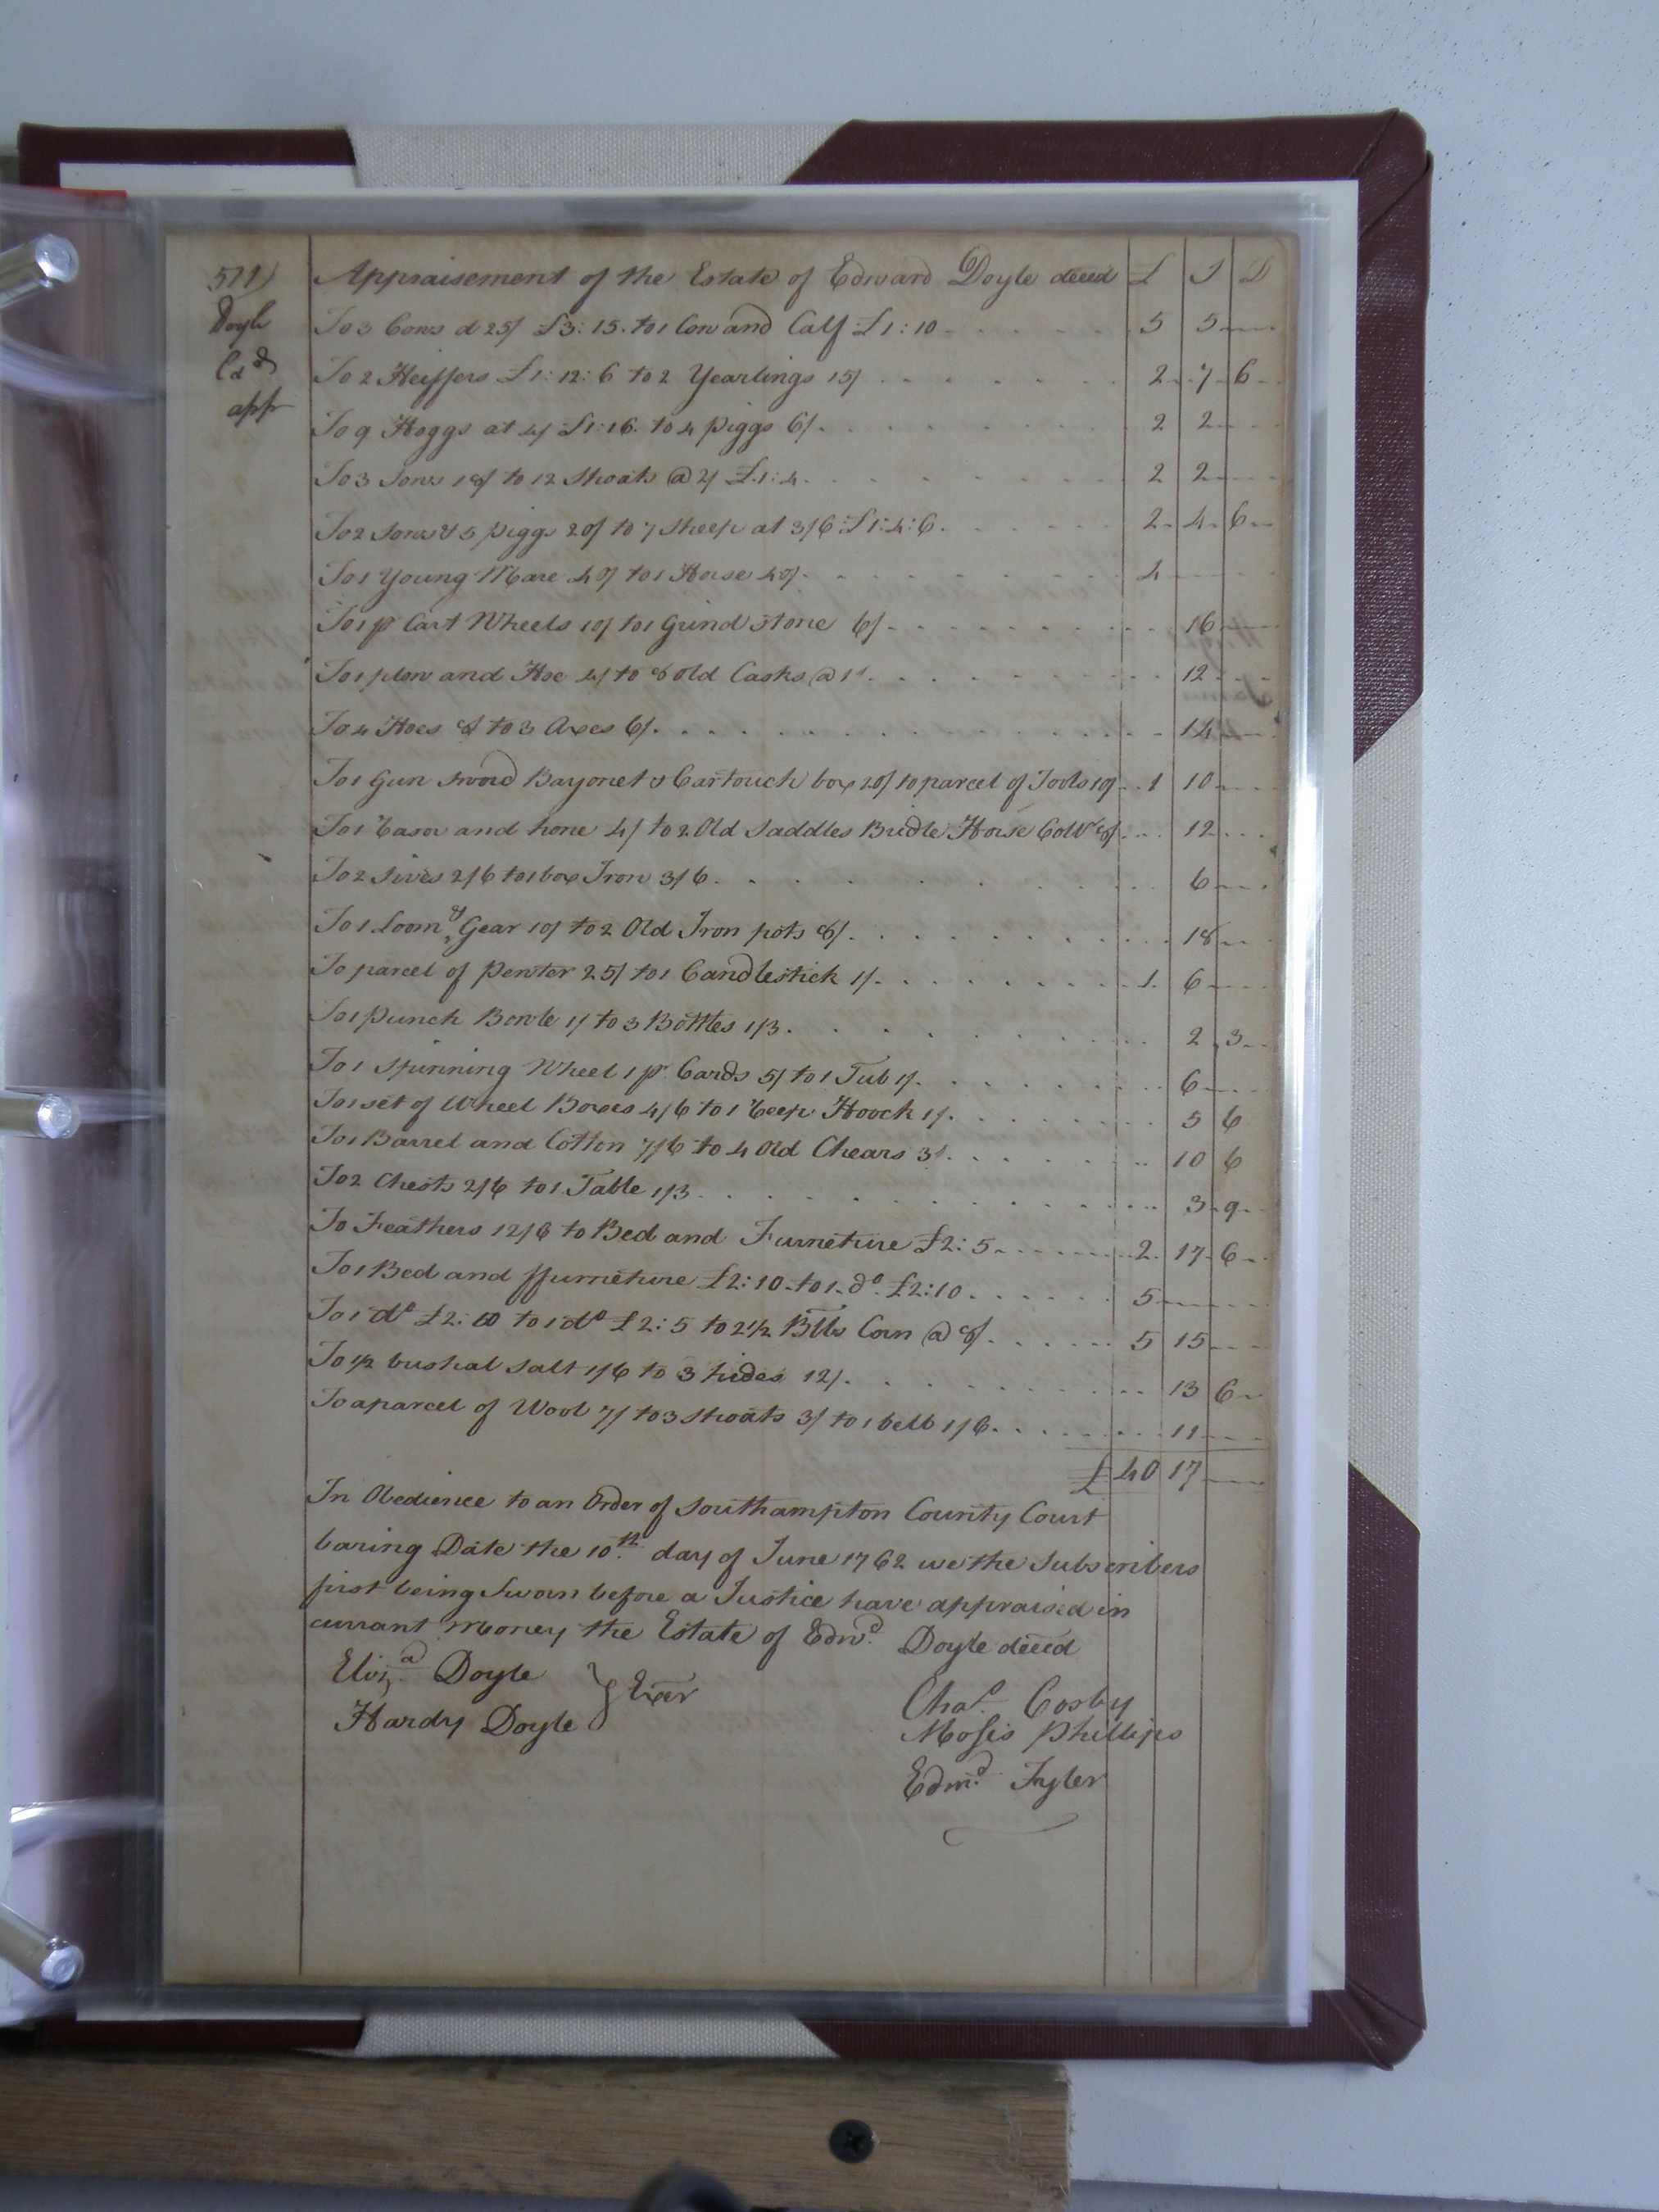 511)
Doyle
Ed.d
app
Appraisement of the Estate of Edward Doyle deced £ S D
To 3 Cows a 25/ £3:15. to 1 Cow and Calf £1:10 5 5
To 2 Heiffers £1:12:6 to 2 Yearlings 15/ 2 7 6
To 9 Hoggs at 4/ £1:16. to 4 piggs 6/ 2 2
To 3 Sows 18/ to 12 Shoats @ 2/ £1:4. 2 2
To 2 Sows & 5 piggs 20/ to 7 Sheep at 3/6 £1:4:6. 2 4 6
To 1 Young Mare 40/ to 1 Horse 40/. 4
To 1 pr Cart Wheels 10/ to 1 Grind Stone 6/ 16
To 1 plow and Hoe 4/ to 8 Old Casks @ 1/. 12
To 4 Hoes 8/ to 3 Axes 6/. 14
To 1 Gun Sword Bayonet & Cartouch box 20/ to parcel of Tools 10/ 1 10
To 1 and hone 4/ to 2 Old Saddles Bridle Horse 8/. 12
To 2 Sives 2/6 to 1 box Iron 3/6. 6
To 1 Loom & Gear 10/ to 2 Old Iron pots 8/. 18
To parcel of Pewter 25/ to 1 Candlestick 1/. 1 6
To 1 punch Bowle 1/ to 3 Bottles 1/3. 2 3
To 1 Spinning Wheel 1 pr Cards 5/ to 1 Tub 1/. 6
To 1 set of Wheel Boxes 4/6 to 1 Hoock 1/. 5 6
To 1 Barrel and Cotton 7/6 to 4 Old Chears 3/. 10 6
To 2 Chests 2/6 to 1 Table 1/3. 3 9
To Feathers 12/6 to Bed and Furneture £2:5. 2 17 6
To 1 Bed and ffurneture £2:10 to 1 do. £2:10. 5
To 1 do £2:10 to 1 do £2:5 to 2 1/2 Blls Corn @ 8/. 5 15
To 1/2 bushal Salt 1/6 to 3 hides 12/. 13 6
To a parcel of Wool 7/ to 3 Shoats 3/ to 1 bell 1/6. 11
£ 40 17
In Obedience to an Order of Southampton County Court
baring Date the 10th. day of June 1762 we the Subscribers
first being Sworn before a Justice have appraised in
currant Money the Estate of Edwd. Doyle deced
Eliza. Doyle
Hardy Doyle } Exer
Chas. Cosby
Moses Phillips
Edmd. Tyler